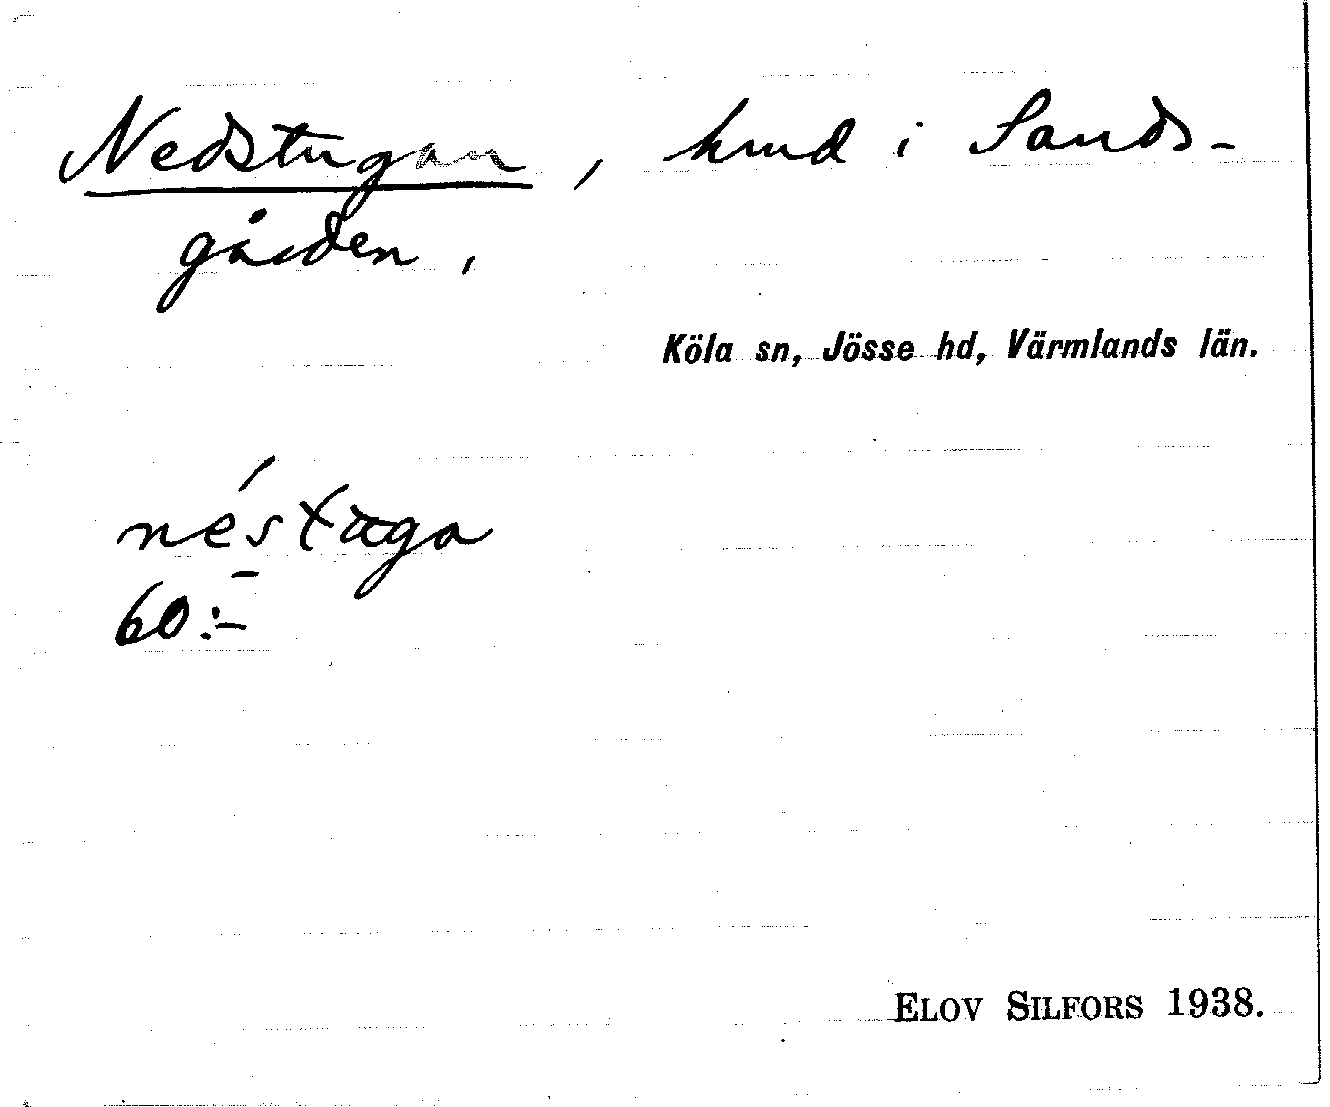 Nedstugan, hmd i Sands-
gården,
Köla sn, Jösse hd, Värmlands län.
néstuga
60:-
ELOV SILFORS 1938.